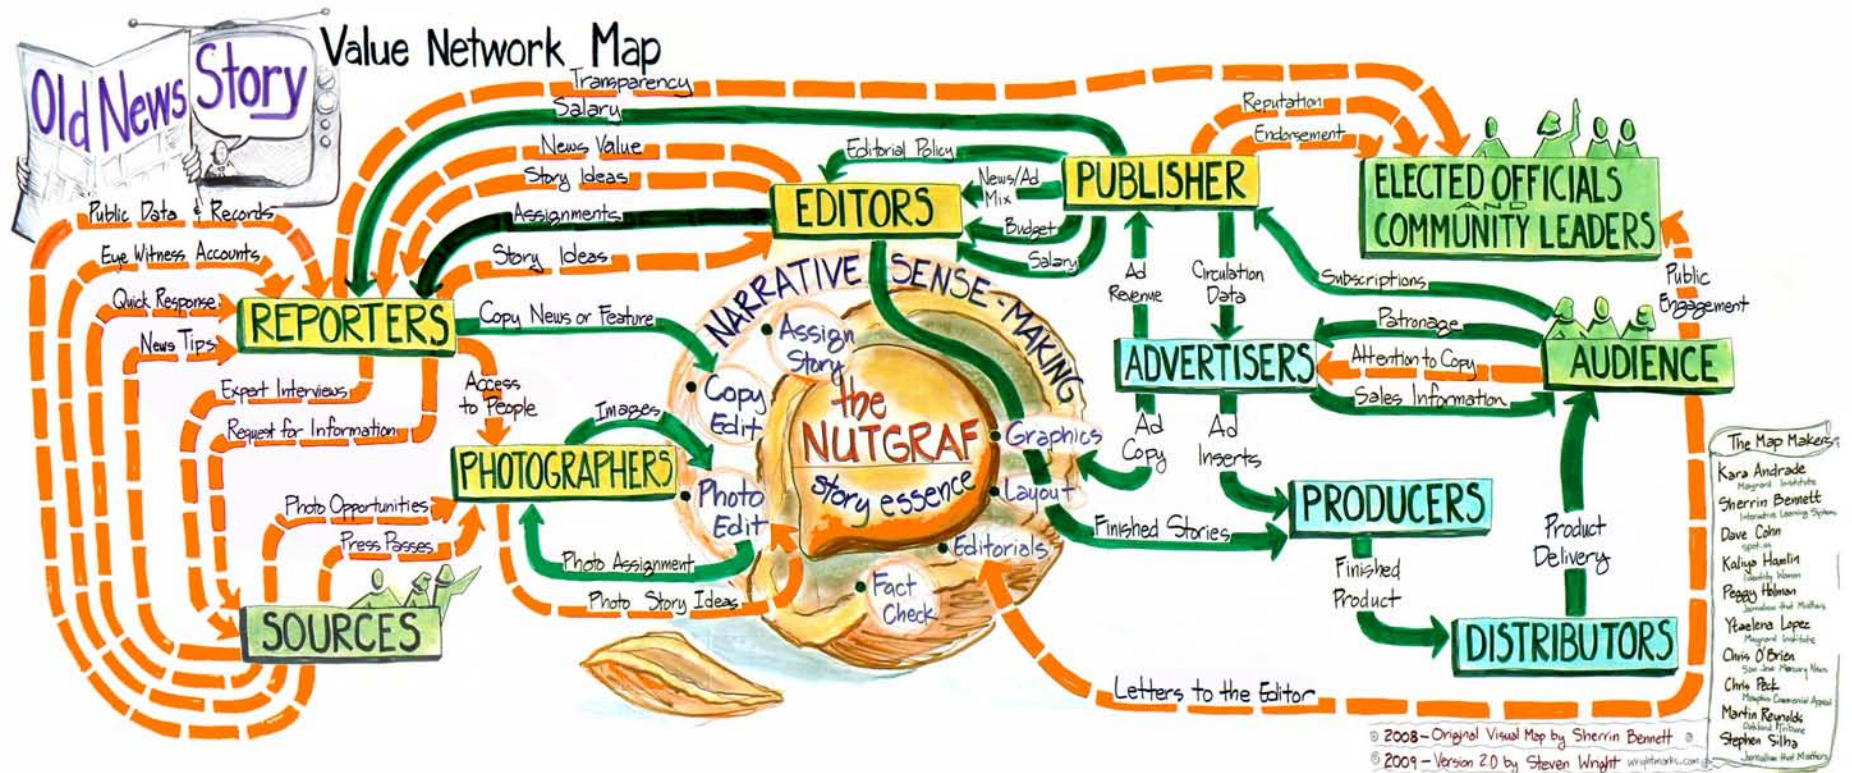 Old News
Story
Value Network Map
Transparency
Salary
News Value
Story Ideas
Assignments
Story Ideas
Public Data & Records
Eye Witness Accounts
Quick Response
News Tips
REPORTERS
Copy News or Feature
Expert Interviews
Request for Information
Access
to People
Images
PHOTOGRAPHERS
Photo Opportunities
Press Passes
Photo Assignment
Photo Story Ideas
SOURCES
EDITORS
Editorial Policy
News/Ad
Mix
Budget
Salary
PUBLISHER
Reputation
Endorsement
ELECTED OFFICIALS
AND
COMMUNITY LEADERS
NARRATIVE SENSE-MAKING
Assign
Story
Copy
Edit
Photo
Edit
the
NUTGRAF
story essence
Graphics
Layout
Editorials
Fact
Check
Ad
Revenue
Circulation
Data
Subscriptions
Patronage
Attention to Copy
Sales Information
Public
Engagement
ADVERTISERS
AUDIENCE
Ad
Copy
Ad
Inserts
PRODUCERS
Finished Stories
Finished
Product
Product
Delivery
DISTRIBUTORS
Letters to the Editor
The Map Makers:
Kara Andrade
Maynard Institute
Sherrin Bennett
Interactive Learning Systems
Dave Cohn
Kaliya Hamlin
Identity Woman
Peggy Holman
Journalism that Matters
Ytaelena Lopez
Maynard Institute
Chris O'Brien
San Jose Mercury News
Chris Peck
Memphis Commercial Appeal
Martin Reynolds
Oakland Tribune
Stephen Silha
Journalism that Matters
© 2008 – Original Visual Map by Sherrin Bennett
© 2009 – Version 2.0 by Steven Wright wrightmarks.com